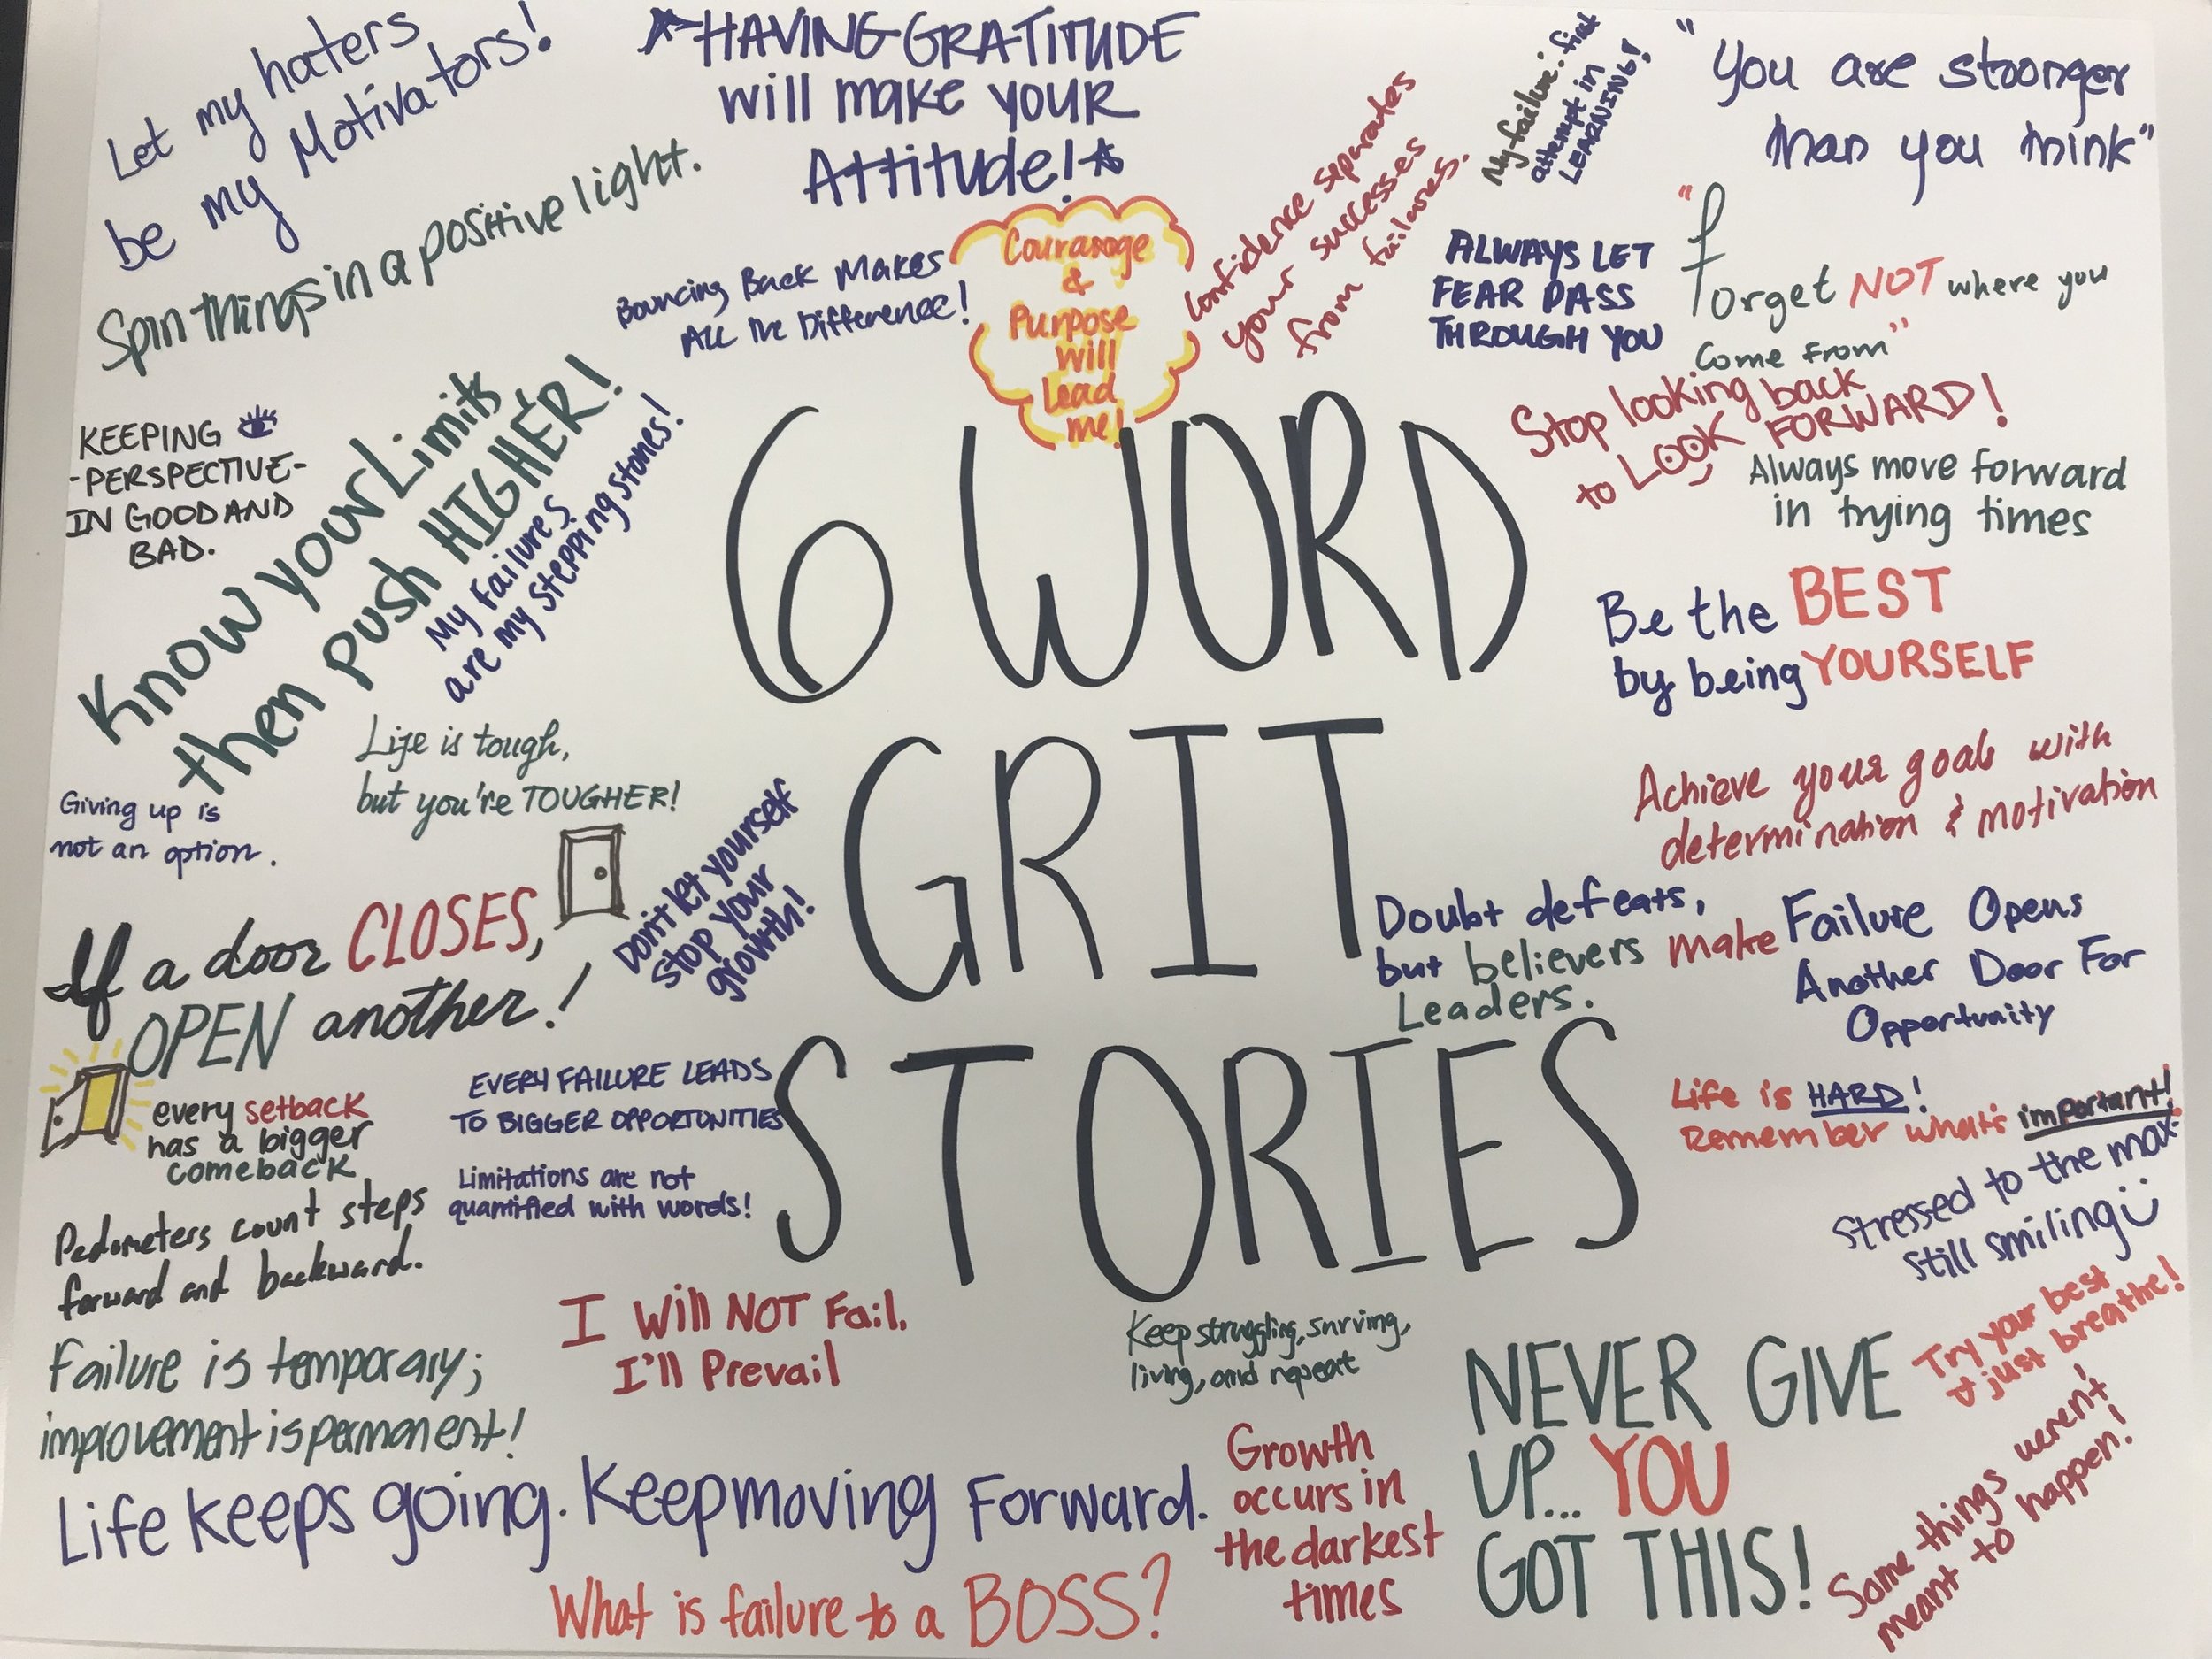 Let my haters
be my Motivators!
HAVING GRATITUDE
will make your
Attitude!
My failure: first
attempt in
LEARNING!
"You are stronger
than you think"
Spin things in a positive light.
Bouncing Back Makes
ALL the Difference!
Couraage
&
Purpose
will
Lead
me!
Confidence separates
your successes
from failures.
ALWAYS LET
FEAR PASS
THROUGH YOU
"Forget NOT where you
Come from"
Stop looking back
to LOOK FORWARD!
Always move forward
in trying times
KEEPING
-PERSPECTIVE-
IN GOOD AND
BAD.
Know your Limits
then push HIGHER!
My Failures
are my stepping stones!
6 WORD
GRIT
STORIES
Be the BEST
by being YOURSELF
Life is tough,
but you're TOUGHER!
Giving up is
not an option.
Achieve your goals with
determination & motivation
Don't let yourself
stop your
growth!
If a door CLOSES,
OPEN another!
Doubt defeats,
but believers make
Leaders.
Failure Opens
Another Door For
Opportunity
every setback
has a bigger
comeback
EVERY FAILURE LEADS
TO BIGGER OPPORTUNITIES
Limitations are not
quantified with words!
Life is HARD!
Remember what's important!
Stressed to the max-
still smiling
Pedometers count steps
forward and backward.
I Will NOT Fail.
I'll Prevail
Keep struggling, surving,
living, and repeat
Failure is temporary;
improvement is permanent!
NEVER GIVE
UP... YOU
GOT THIS!
Try your best
& just breathe!
Life keeps going. Keep moving Forward.
Growth
occurs in
the darkest
times
What is failure to a BOSS?
Some things weren't
meant to happen!